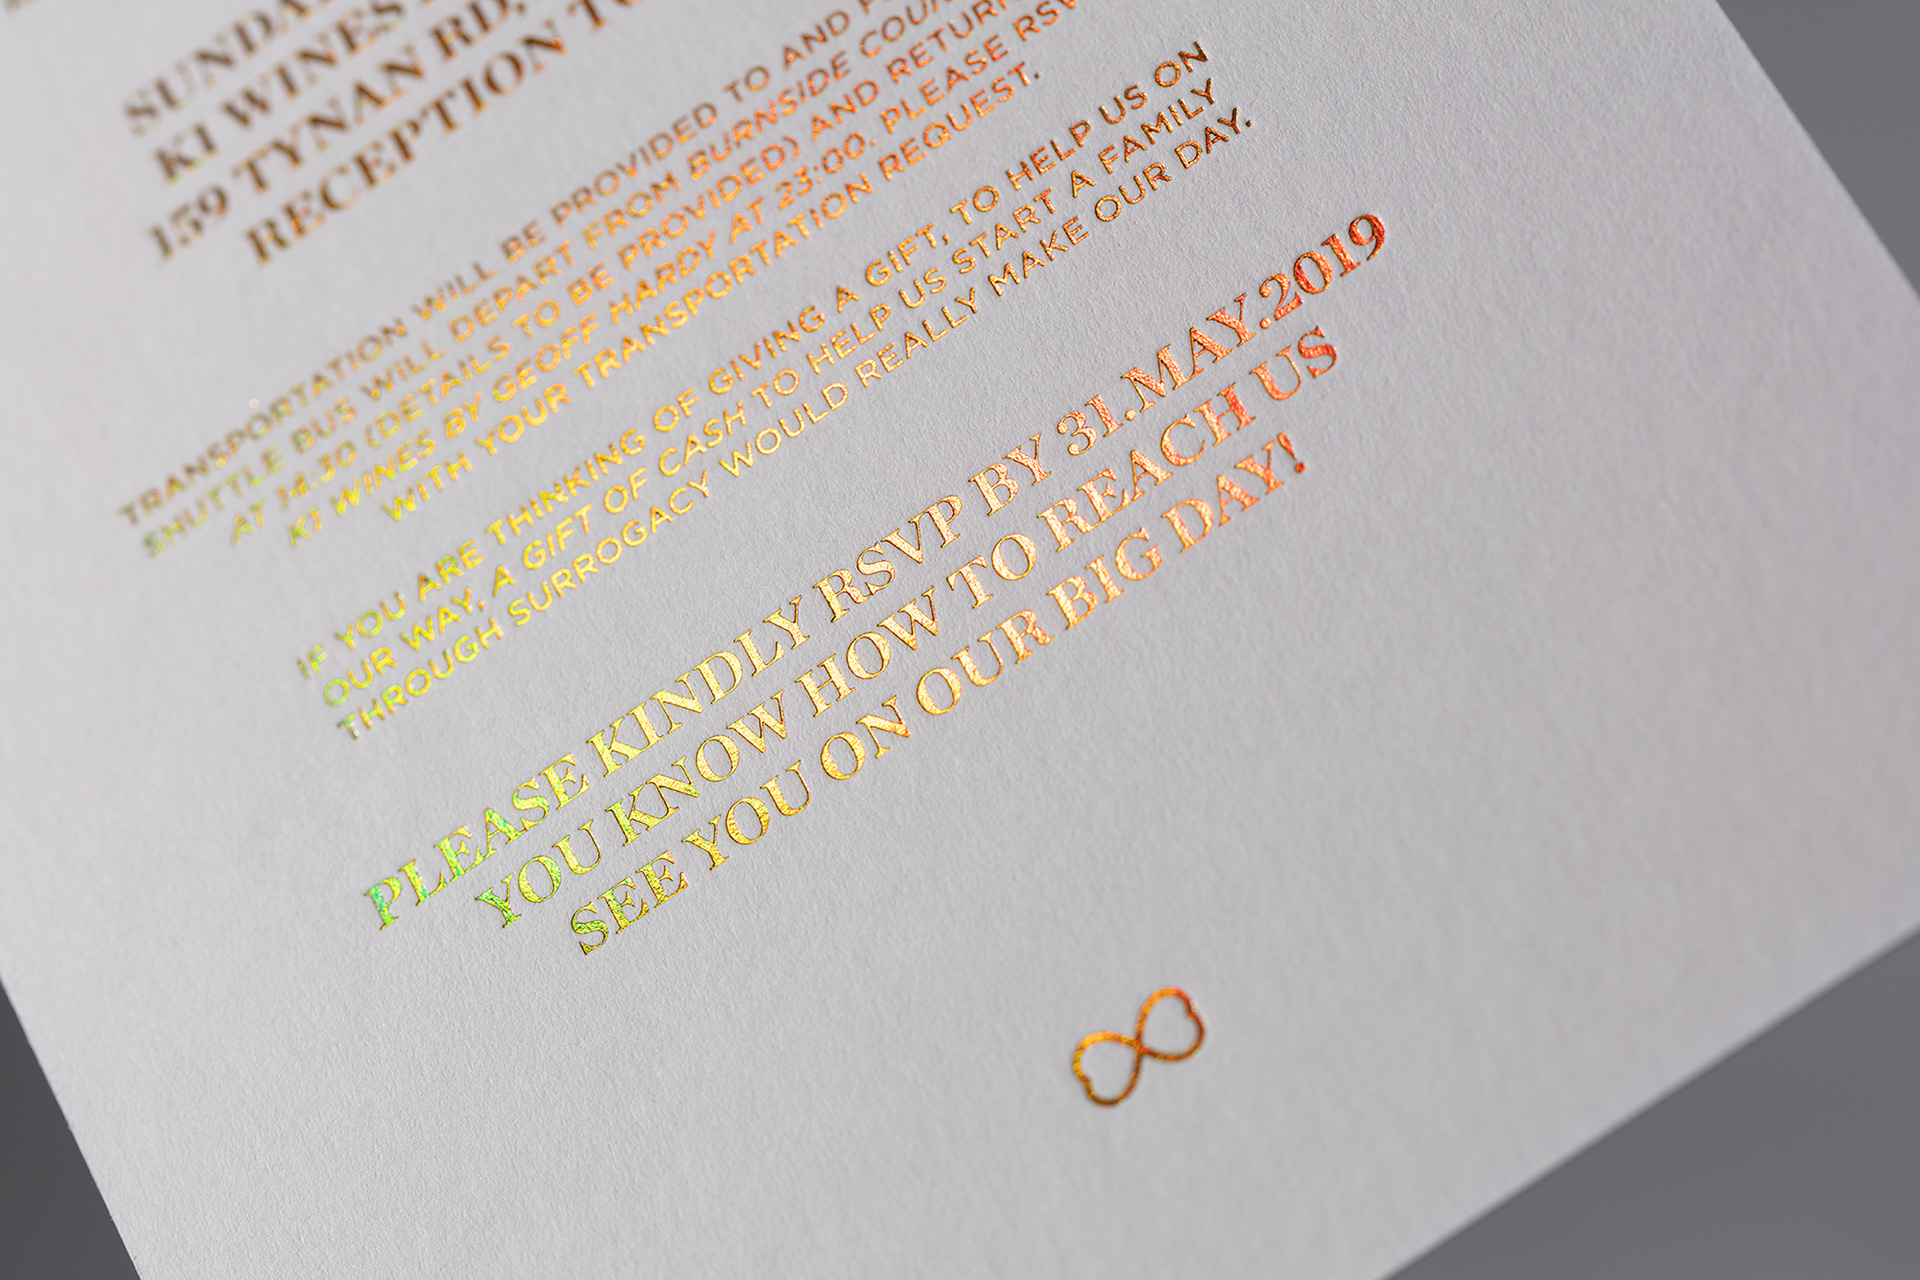 KI WINES
159 TYNAN RD,
RECEPTION
TRANSPORTATION WILL BE PROVIDED TO AND
SHUTTLE BUS WILL DEPART FROM BURNSIDE
AT 14:30 (DETAILS TO BE PROVIDED) AND RETURN
KI WINES BY GEOFF HARDY AT 23:00. PLEASE
WITH YOUR TRANSPORTATION REQUEST.
IF YOU ARE THINKING OF GIVING A GIFT, TO HELP US ON
OUR WAY, A GIFT OF CASH TO HELP US START A FAMILY
THROUGH SURROGACY WOULD REALLY MAKE OUR DAY.
PLEASE KINDLY RSVP BY 31.MAY.2019
YOU KNOW HOW TO REACH US
SEE YOU ON OUR BIG DAY!